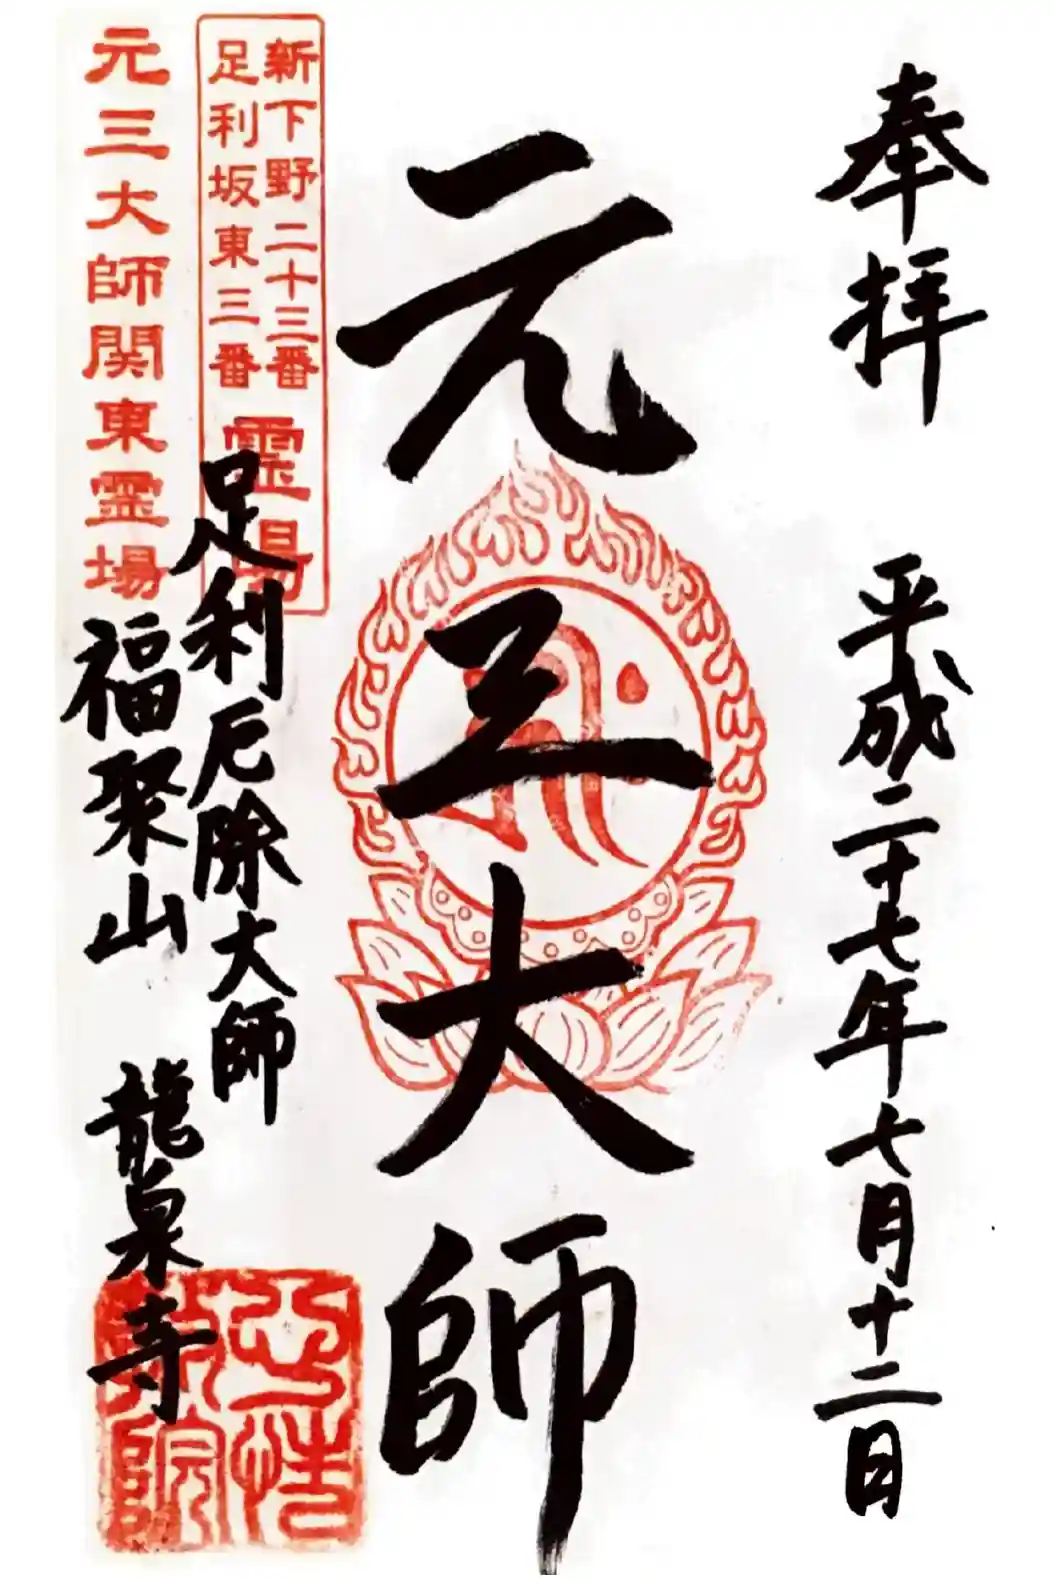 奉拝
平成二十七年七月十二日
元三大師
新下野二十三番
足利坂東三番
霊場
元三大師関東霊場
足利厄除大師
福聚山
龍泉寺